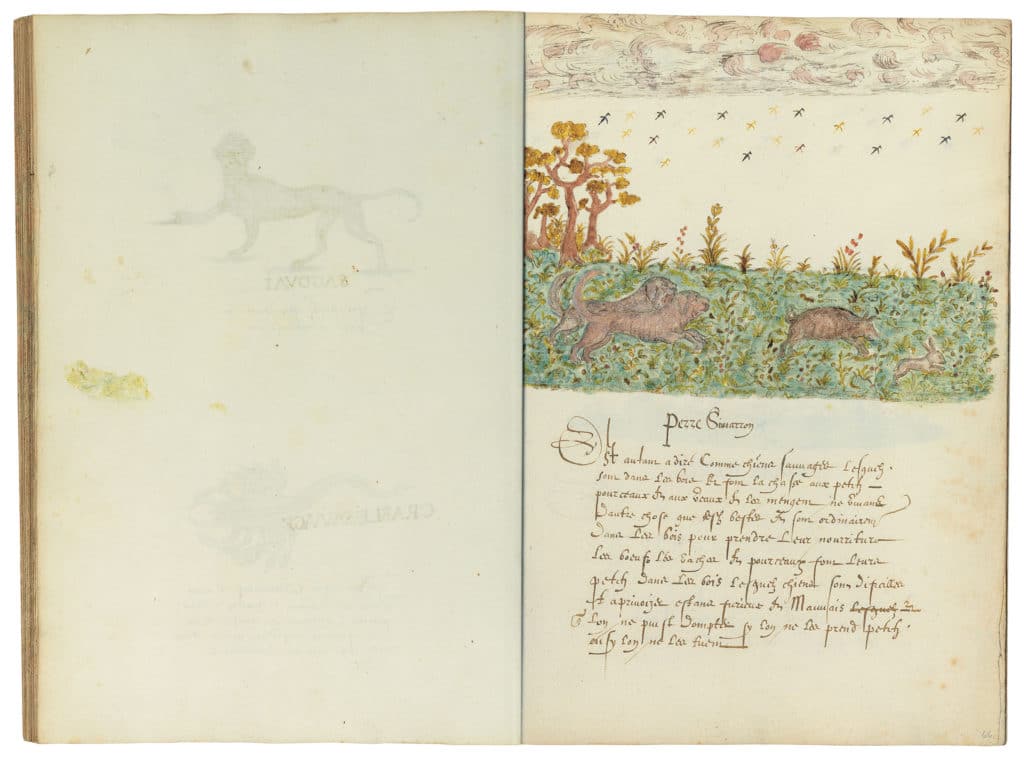 SAGOVAI
Perre Simarron
Est autant a dire Comme chiens sauvages Lesquelz
sont dans Les bois Et font La chasse aux petitz
pourceaux Et aux veaux Et Les mengent ne vivans
Dautre chose que bestes Et sont ordinairemt
Dans Les bois pour prendre Leur nourriture
Les boeufz Les vaches Et pourceaux font Leurs
petitz dans Les bois Lesquelz chiens sont dificilles
Et aprivoizer estans furieux Et Mauvais Lesquelz
Lon ne puist dompter sy Lon ne Les prend petitz
ou sy Lon ne Les tuent